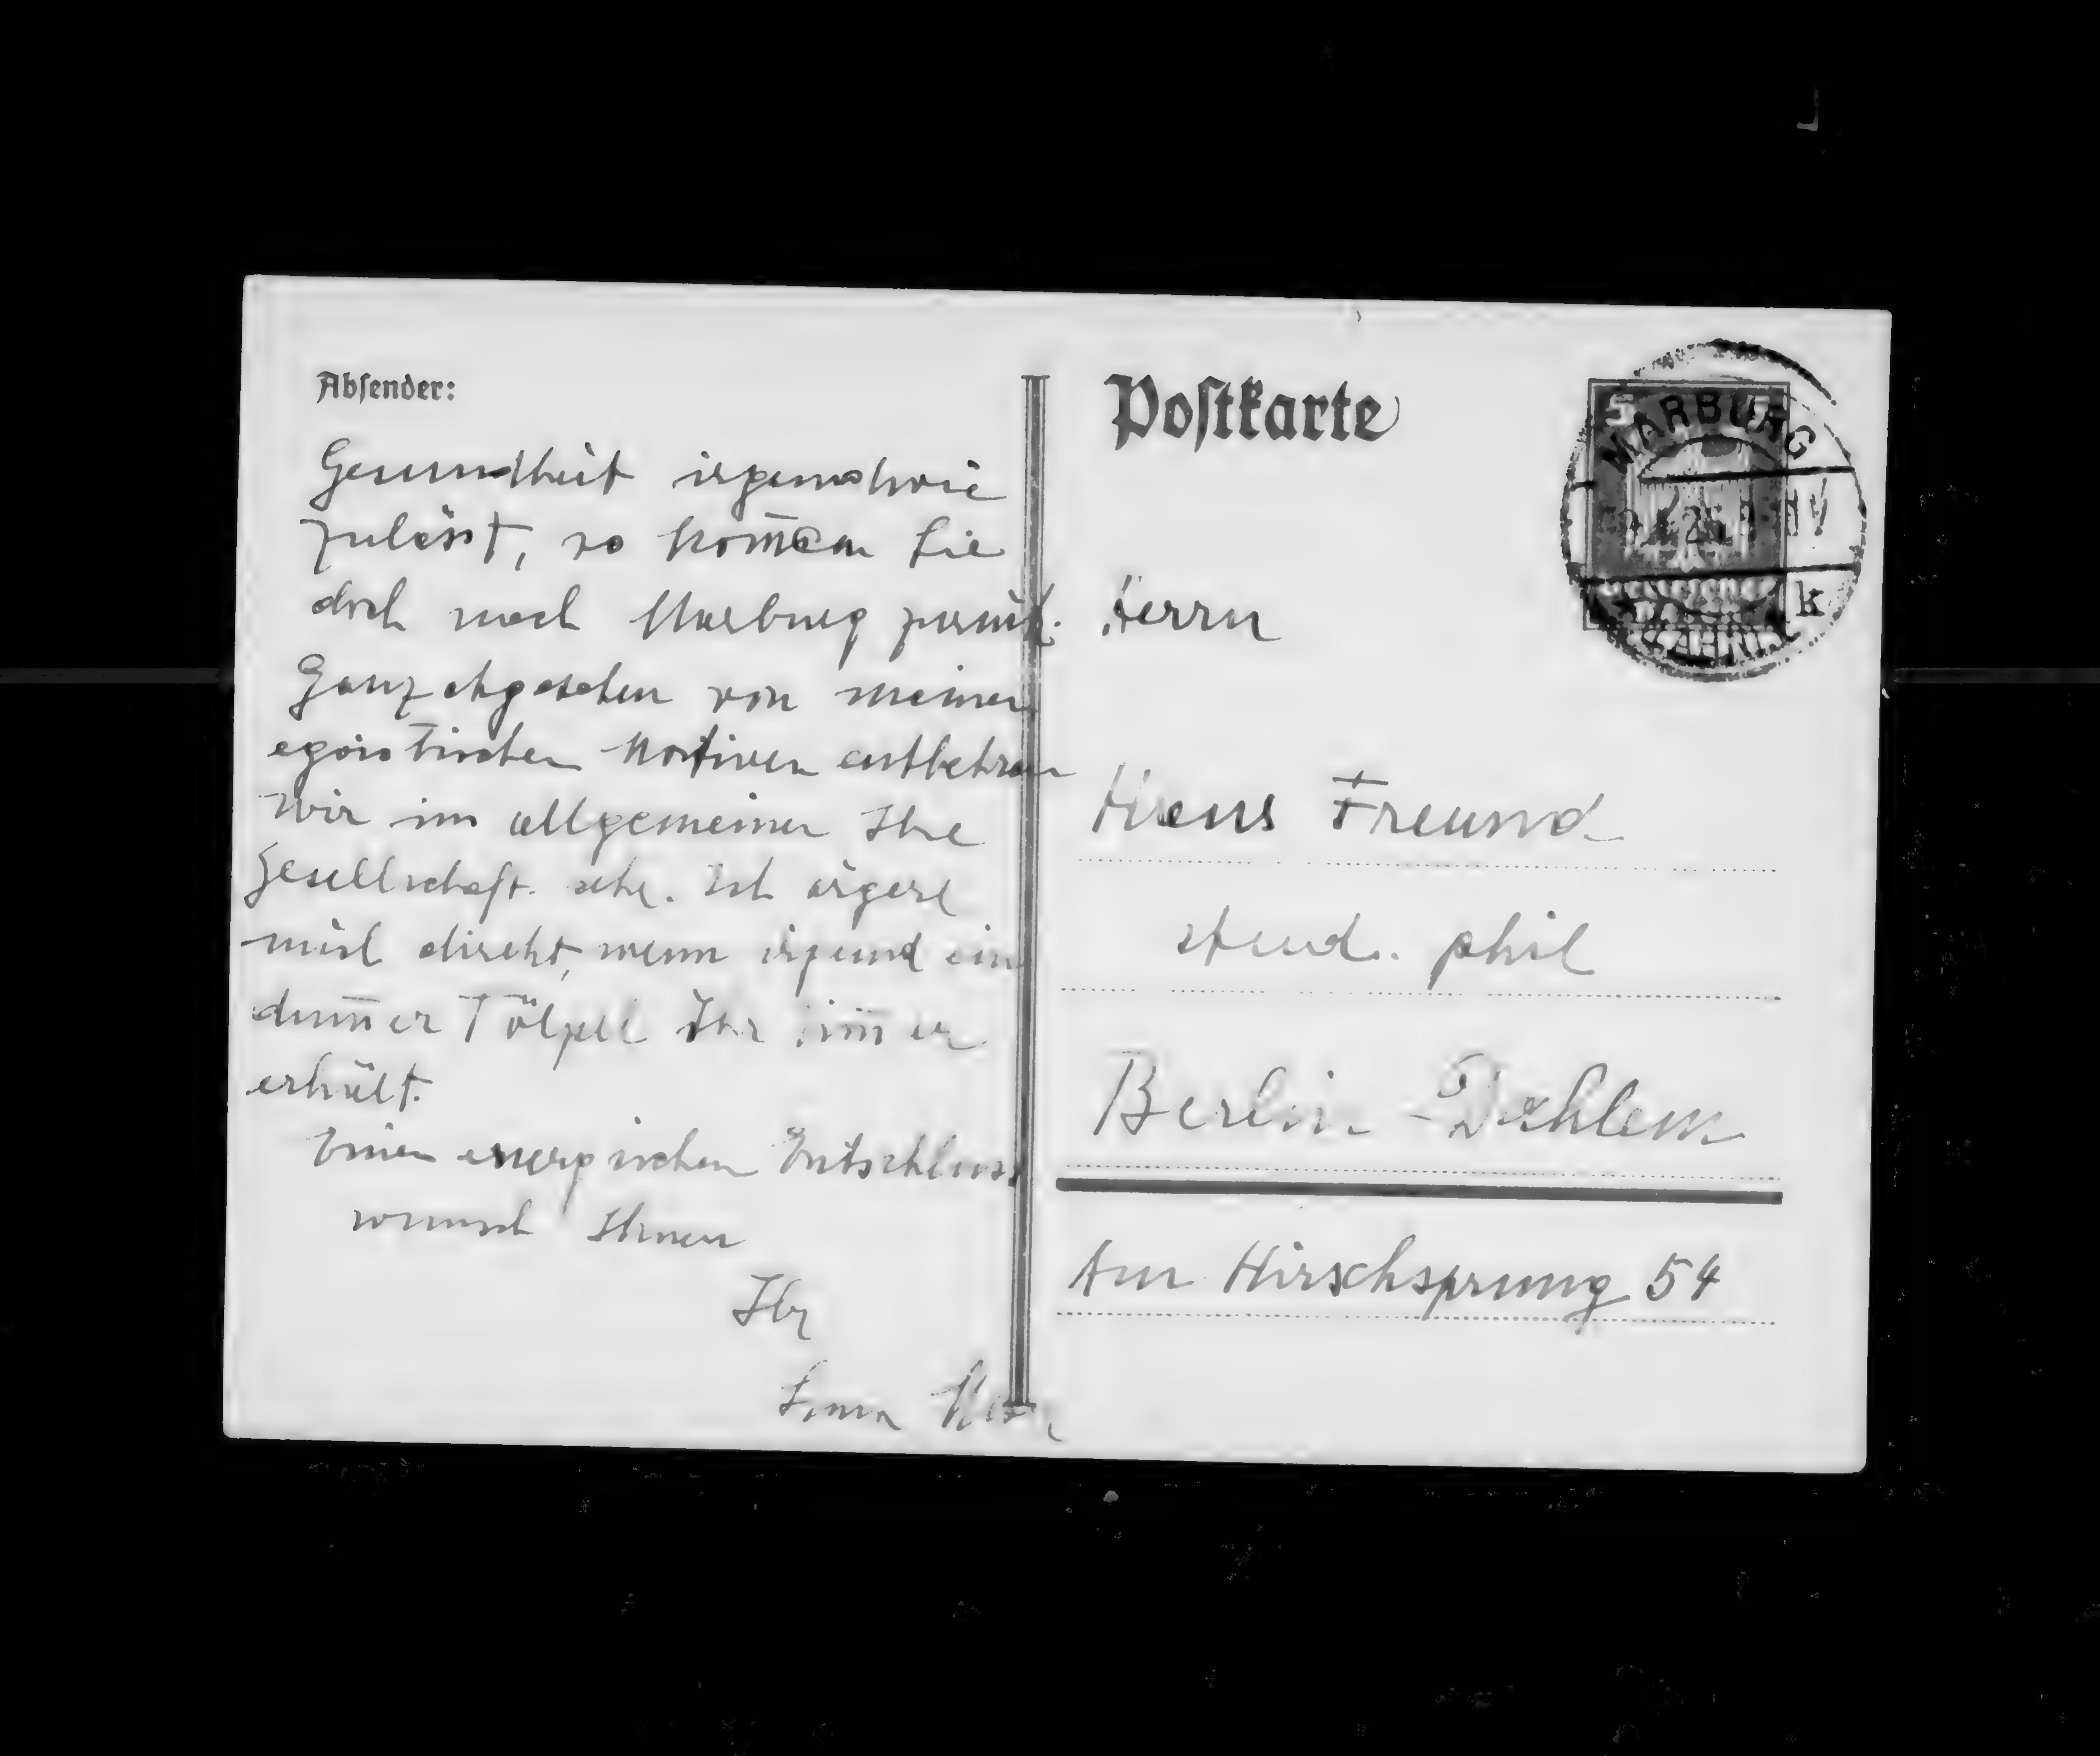 Absender:
Gesundheit irgendwie
zulässt, so kom̅en Sie
doch nach Marburg zurück.
Ganz abgesehen von meinen
egoistischen Motiven entbehren
wir im allgemeinen Ihre
Gesellschaft sehr. Ich ärgere
mich direkt, wenn irgend ein
dum̅er Tölpel Ihr Zim̅er
erhält.
Einen energischen Entschluss
wünscht Ihnen
Ihr
Postkarte
MARBURG
k
Herrn
Hans Freund
stud. phil
Berlin-Dahlem
Am Hirschsprung 54